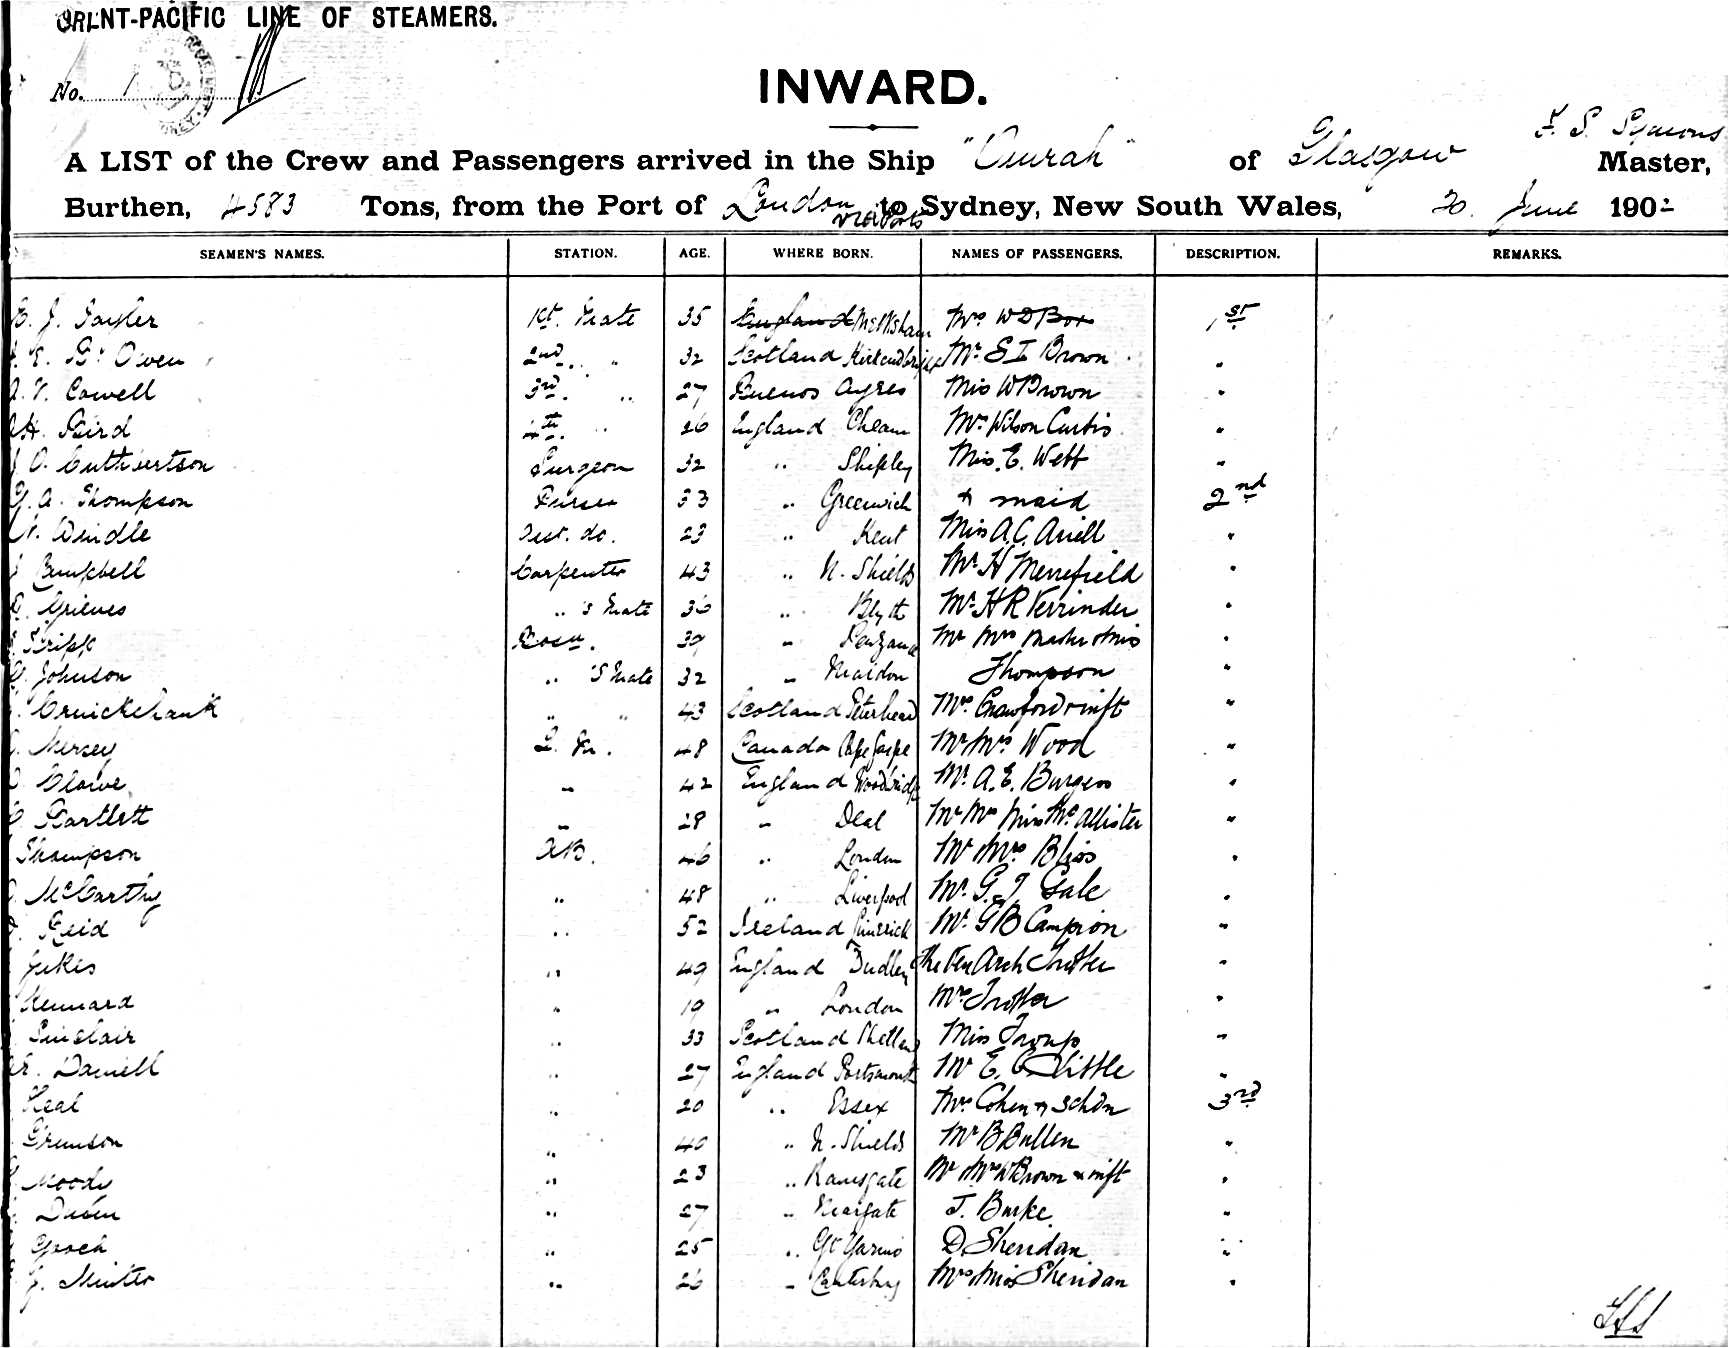 ORIENT-PACIFIC LINE OF STEAMERS.
No. 1
INWARD.
F. S. Symons
A LIST of the Crew and Passengers arrived in the Ship "Cuzco" of Glasgow Master,
Burthen, 4583 Tons, from the Port of London to Sydney, New South Wales, 20. June 1902
via Ports
SEAMEN'S NAMES. STATION. AGE. WHERE BORN. NAMES OF PASSENGERS. DESCRIPTION. REMARKS.
J. Tayler 1st. Mate 35 England Mrs W D Box 1st
E. Br Owen 2nd. " 32 Scotland Kirkcudbright Mr S I Brown "
A. V. Cowell 3rd. " 27 Buenos Ayres Miss W Brown "
A H. Baird 4th. " 26 England Cheam Mr. Wilson Curtis "
J. O. Cuthbertson Surgeon 32 " Shipley Miss. E. Webb "
G. A. Thompson Purser 33 " Greenwich & maid 2nd
Windle Asst. do. 23 " Kent Miss A. C. Ariell "
J Campbell Carpenter 43 " N. Shields Mr. H Merrefield "
Grieves " 's Mate 36 " Blyth Mr. H R Verrinder "
Tripp Bosn. 39 " Penzance Mr Mrs Master & Miss "
Johnson " 's Mate 32 " Maldon Thompson "
Cruickshank " " 43 Scotland Peterhead Mrs Crawford & inft "
Mersey L. Tr. 48 Canada Cape Gaspe Mr Mrs Wood "
Clowe " 42 England Woodbridge Mr. A. E. Burgess "
Bartlett " 28 " Deal Mr Mrs Miss McAllister "
Thompson AB. 46 " London Mr & Mrs Bliss "
McCarthy " 48 " Liverpool Mr. G. J. Gale "
Reid " 52 Ireland Limerick Mr. G B Campion "
Jukes " 49 England Dudley The Ven Arch Trotter "
Kennard " 19 " London Mrs Trotter "
Sinclair " 33 Scotland Shetland Miss Troup "
Daniell " 27 England Portsmouth Mr E. C Little "
Neal " 20 " Essex Mrs Cohen & 3 chdn 3rd
Gremson " 40 " N. Shields Mr B Bullen "
Moody " 23 " Ramsgate Mr & Mrs W Brown & inft "
" 27 " Margate J. Burke "
Gooch " 25 " Gt Yarmo D. Sheridan "
J. Minter " 26 " Canterbury Mrs & Miss Sheridan "